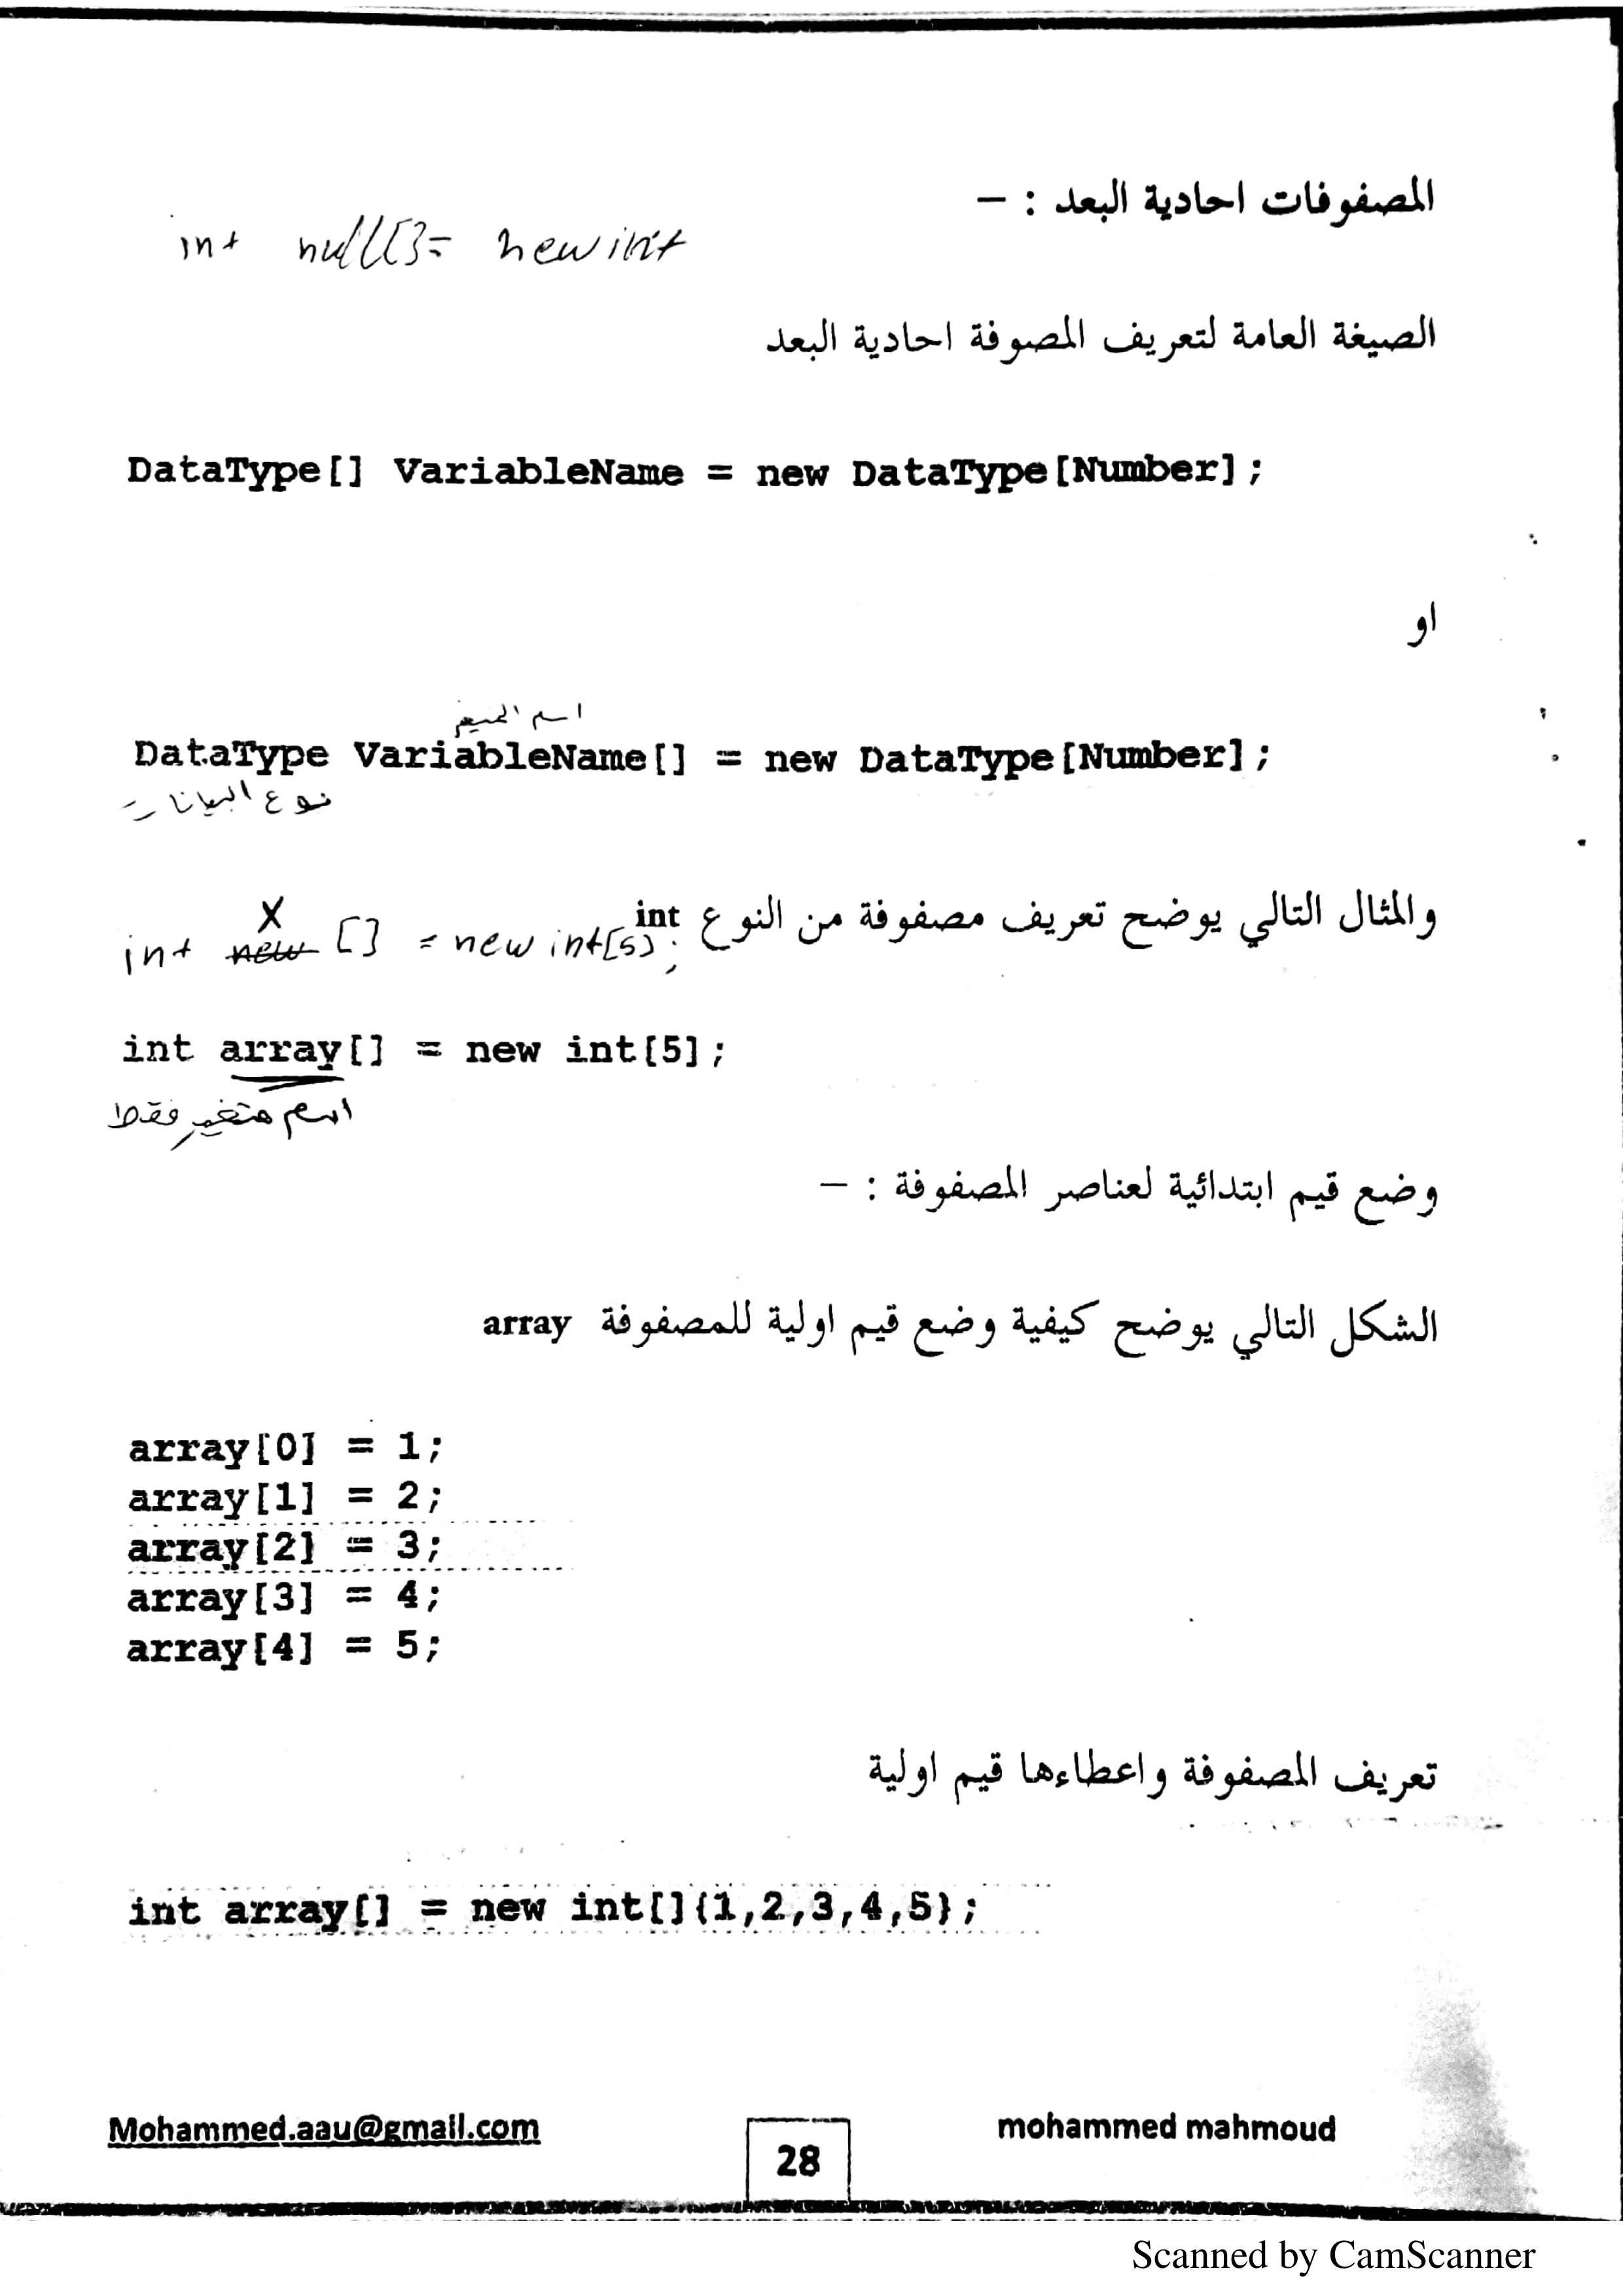 المصفوفات احادية البعد : –
int null[]= new int
الصيغة العامة لتعريف المصوفة احادية البعد
DataType[] VariableName = new DataType[Number];
او
اسم
DataType VariableName[] = new DataType[Number];
نوع البيانات
والمثال التالي يوضح تعريف مصفوفة من النوع int
x
int new [] = new int[5];
int array[] = new int[5];
اسم متغير فقط
وضع قيم ابتدائية لعناصر المصفوفة : –
الشكل التالي يوضح كيفية وضع قيم اولية للمصفوفة array
array[0] = 1;
array[1] = 2;
array[2] = 3;
array[3] = 4;
array[4] = 5;
تعريف المصفوفة واعطاءها قيم اولية
int array[] = new int[]{1,2,3,4,5};
Mohammed.aau@gmail.com
28
mohammed mahmoud
Scanned by CamScanner